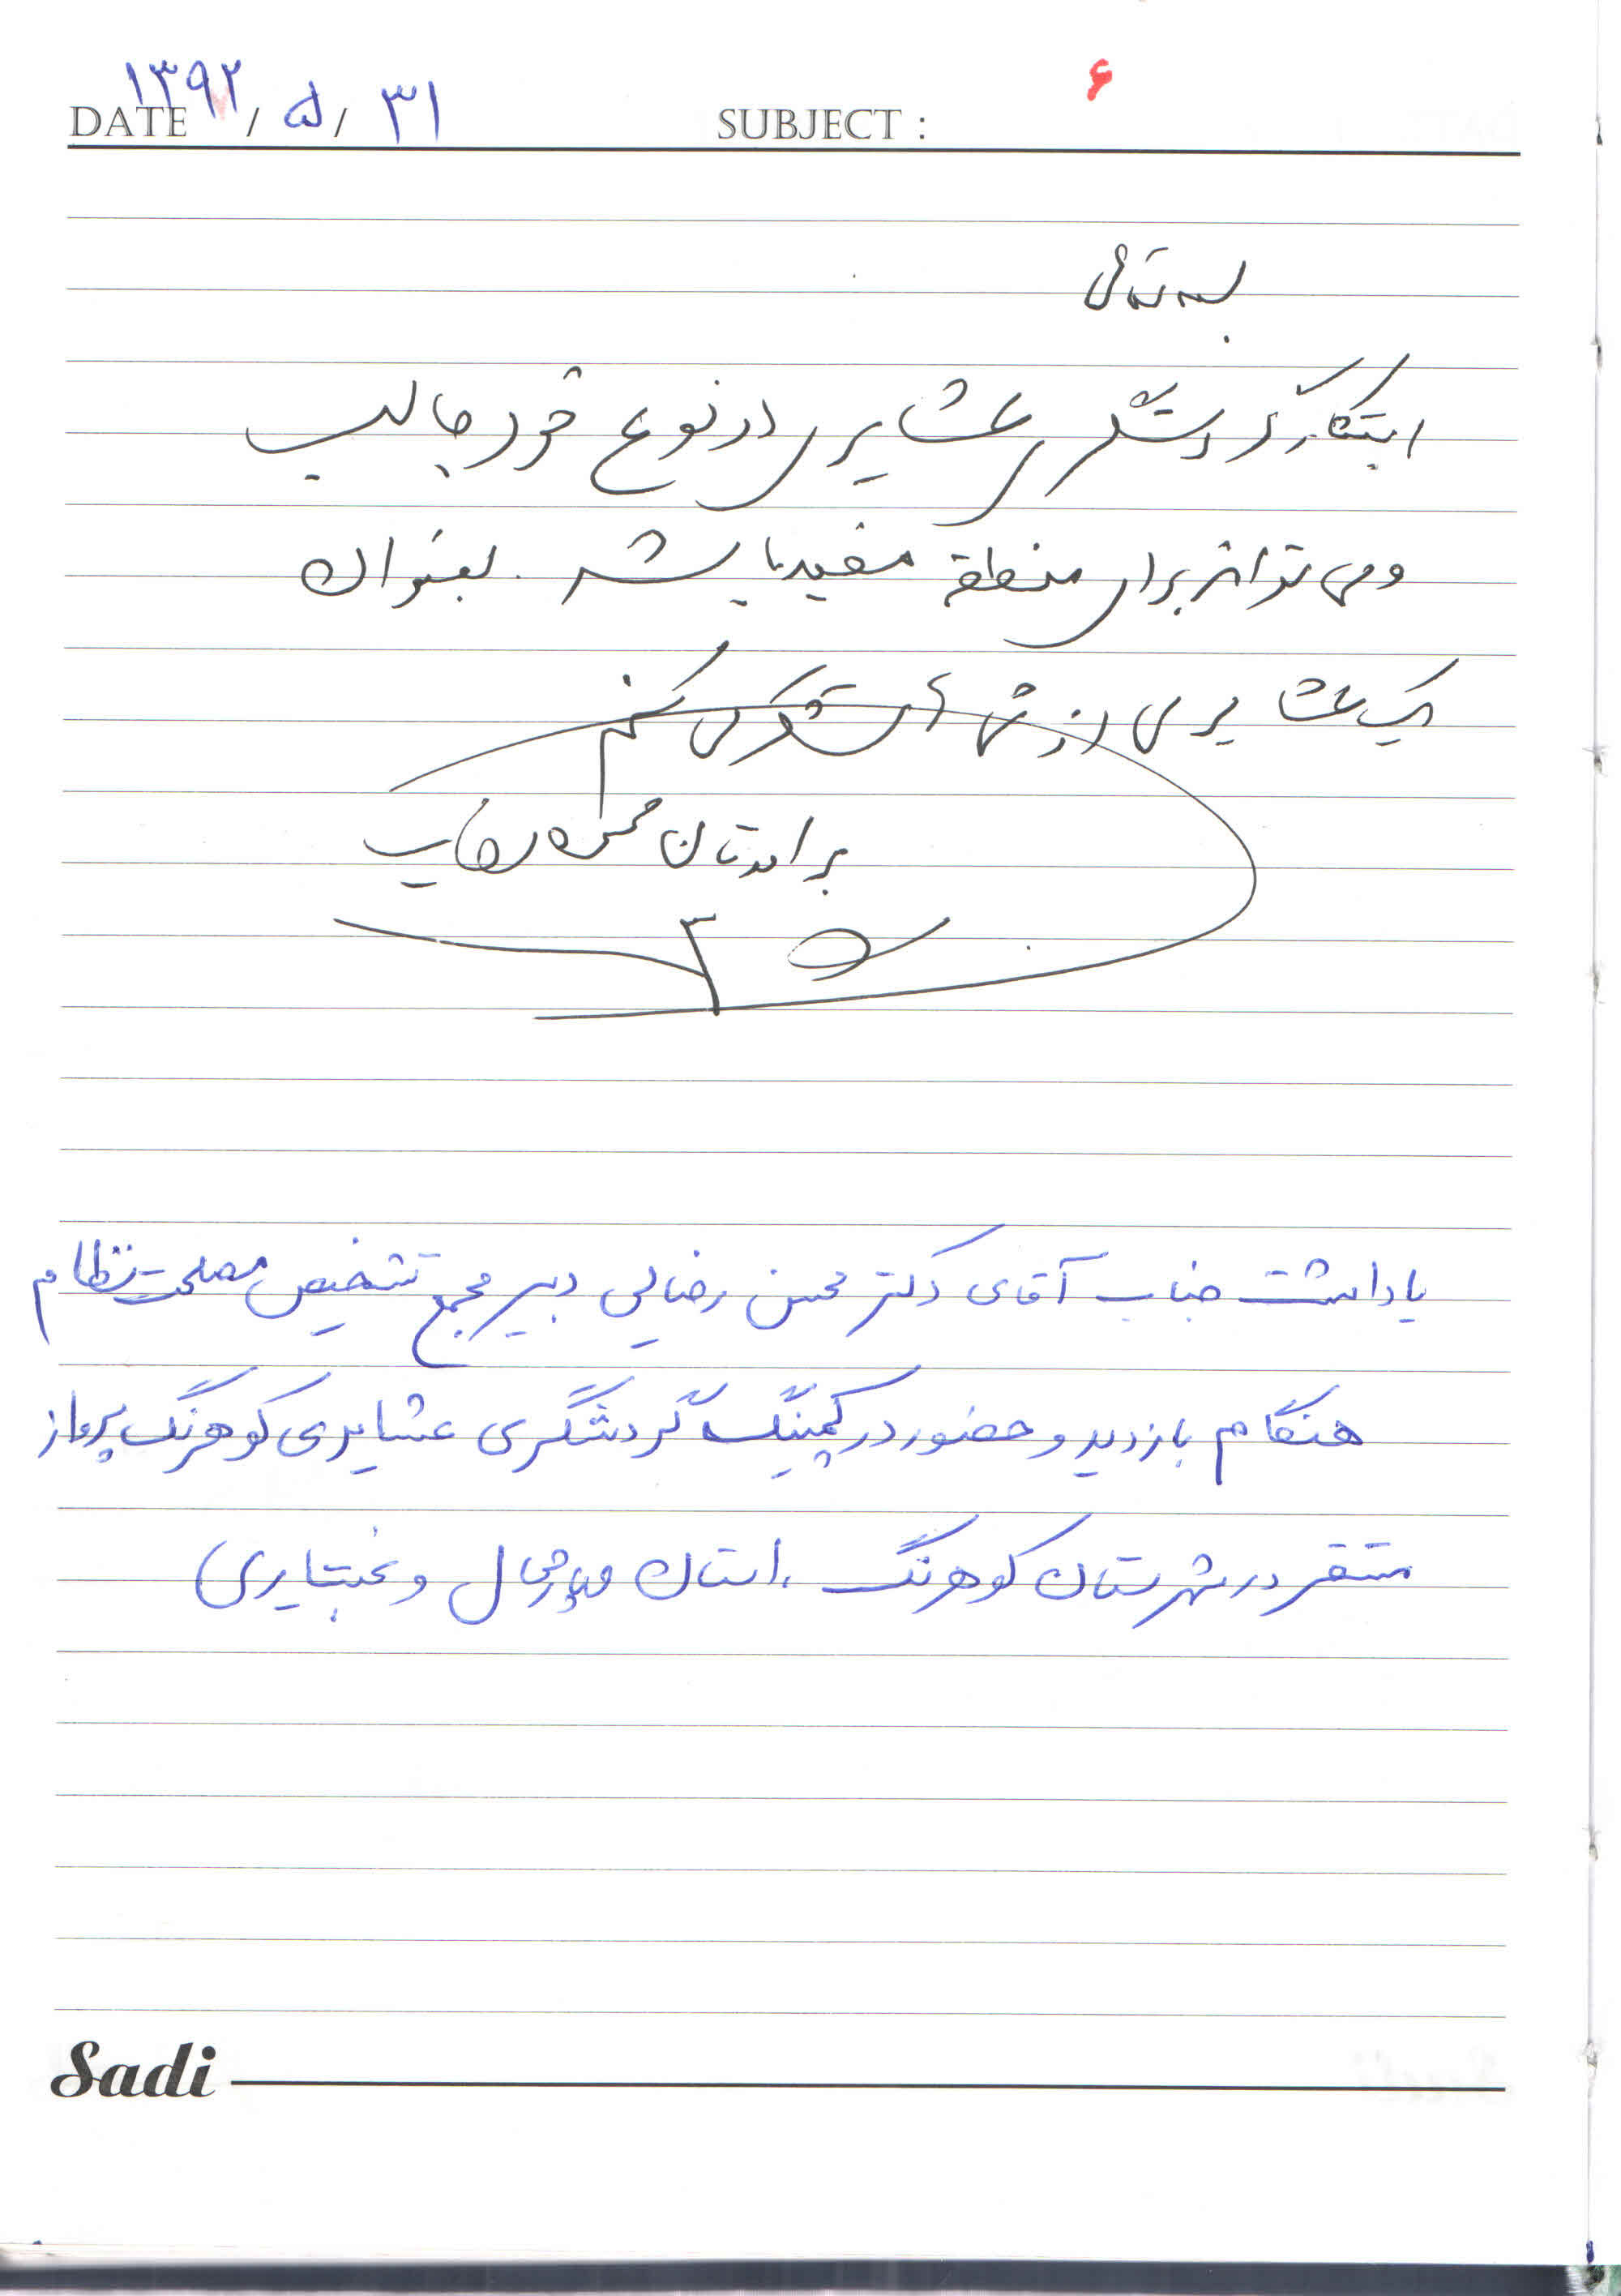 DATE ۱۳۹۲ / ۵ / ۳۱ SUBJECT : ۶
بسمه تعالی
ابتکار گردشگری عشایری در نوع خود جالب
و می تواند برای منطقه مفید باشد. بعنوان
یک عشایری از شما تشکر می کنم
برادرتان محسن رضایی
یاداشت جناب آقای دکتر محسن رضایی دبیر مجمع تشخیص مصلحت نظام
هنگام بازدید و حضور در کمپینگ گردشگری عشایری کوهرنگ پرواز
مستقر در شهرستان کوهرنگ ، استان چهارمحال و بختیاری)
Sadi